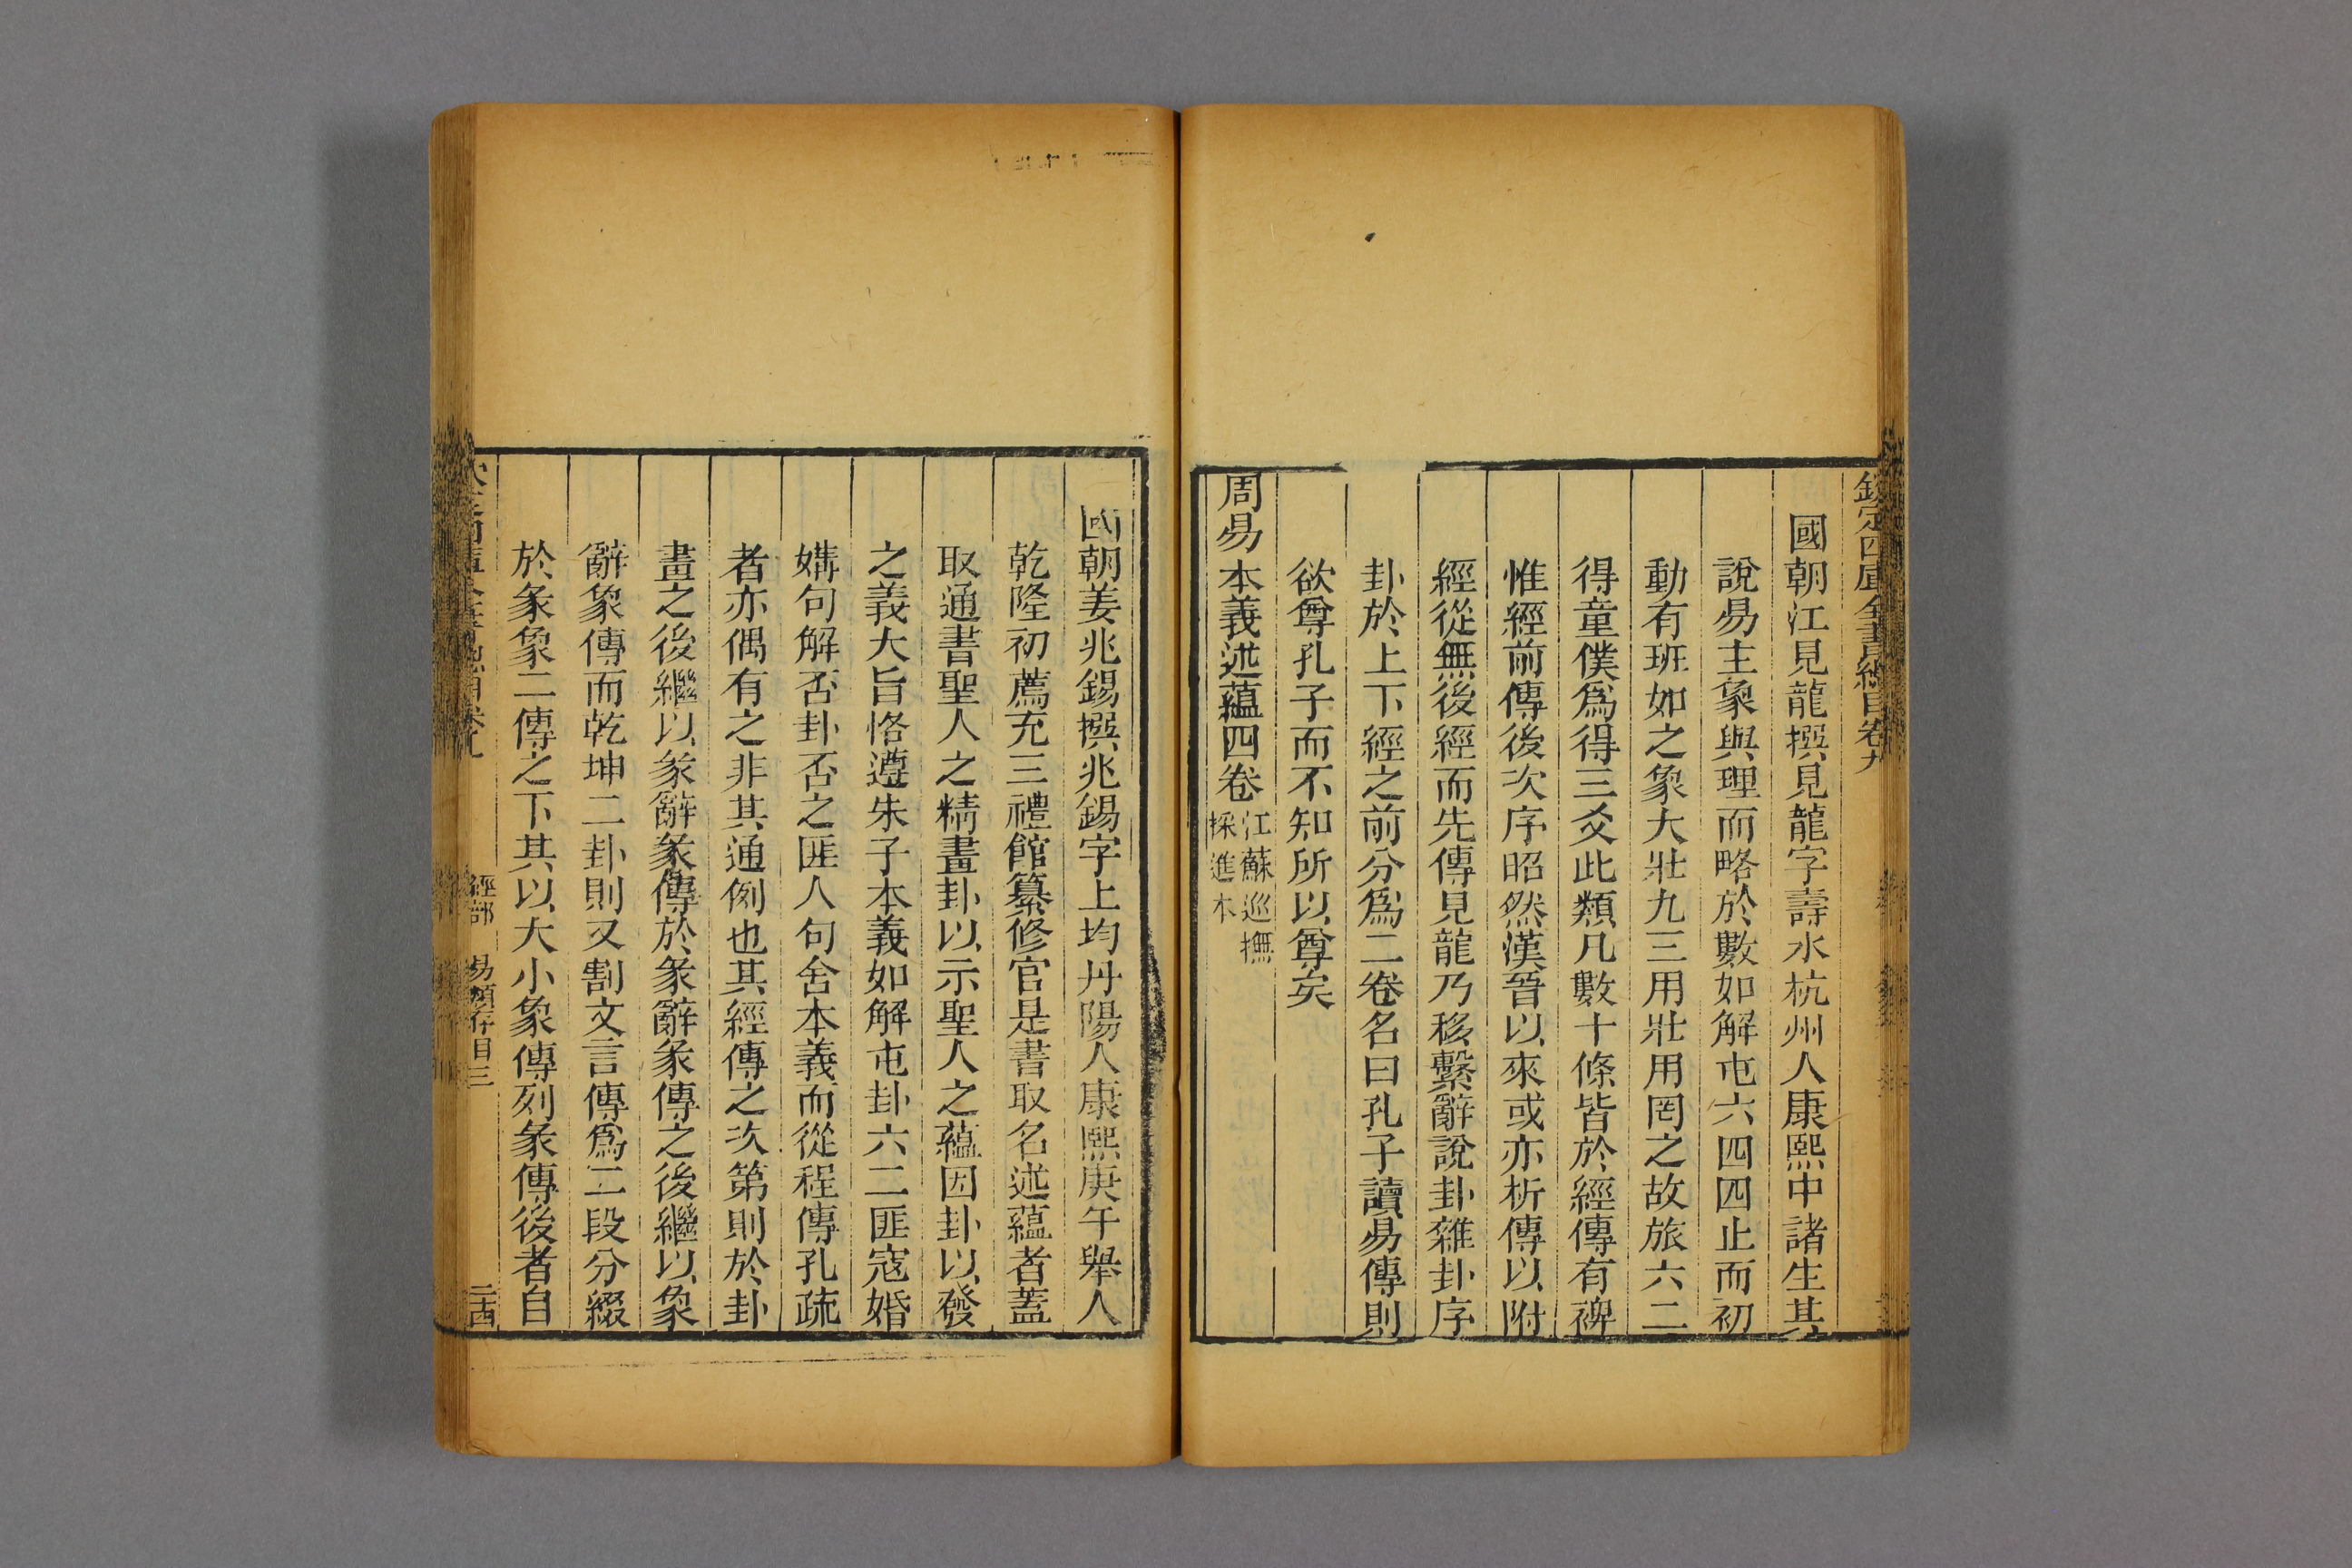 欽定四庫全書總目卷九
國朝江見龍撰見龍字壽水杭州人康熙中諸生其
說易主象與理而略於數如解屯六四四止而初
動有班如之象大壯九三用壯用罔之故旅六二
得童僕爲得三爻此類凡數十條皆於經傳有裨
惟經前傳後次序昭然漢晉以來或亦析傳以附
經從無後經而先傳見龍乃移繫辭說卦雜卦序
卦於上下經之前分爲二卷名曰孔子讀易傳則
欲尊孔子而不知所以尊矣
周易本義述蘊四卷
江蘇巡撫
採進本
國朝姜兆錫撰兆錫字上均丹陽人康熙庚午舉人
乾隆初薦充三禮館纂修官是書取名述蘊者蓋
取通書聖人之精畫卦以示聖人之蘊因卦以發
之義大旨恪遵朱子本義如解屯卦六二匪寇婚
媾句解否卦否之匪人句舍本義而從程傳孔疏
者亦偶有之非其通例也其經傳之次第則於卦
畫之後繼以彖辭彖傳於彖辭彖傳之後繼以象
辭象傳而乾坤二卦則又割文言傳爲二段分綴
於彖象二傳之下其以大小象傳列彖傳後者自
經部 易類存目三